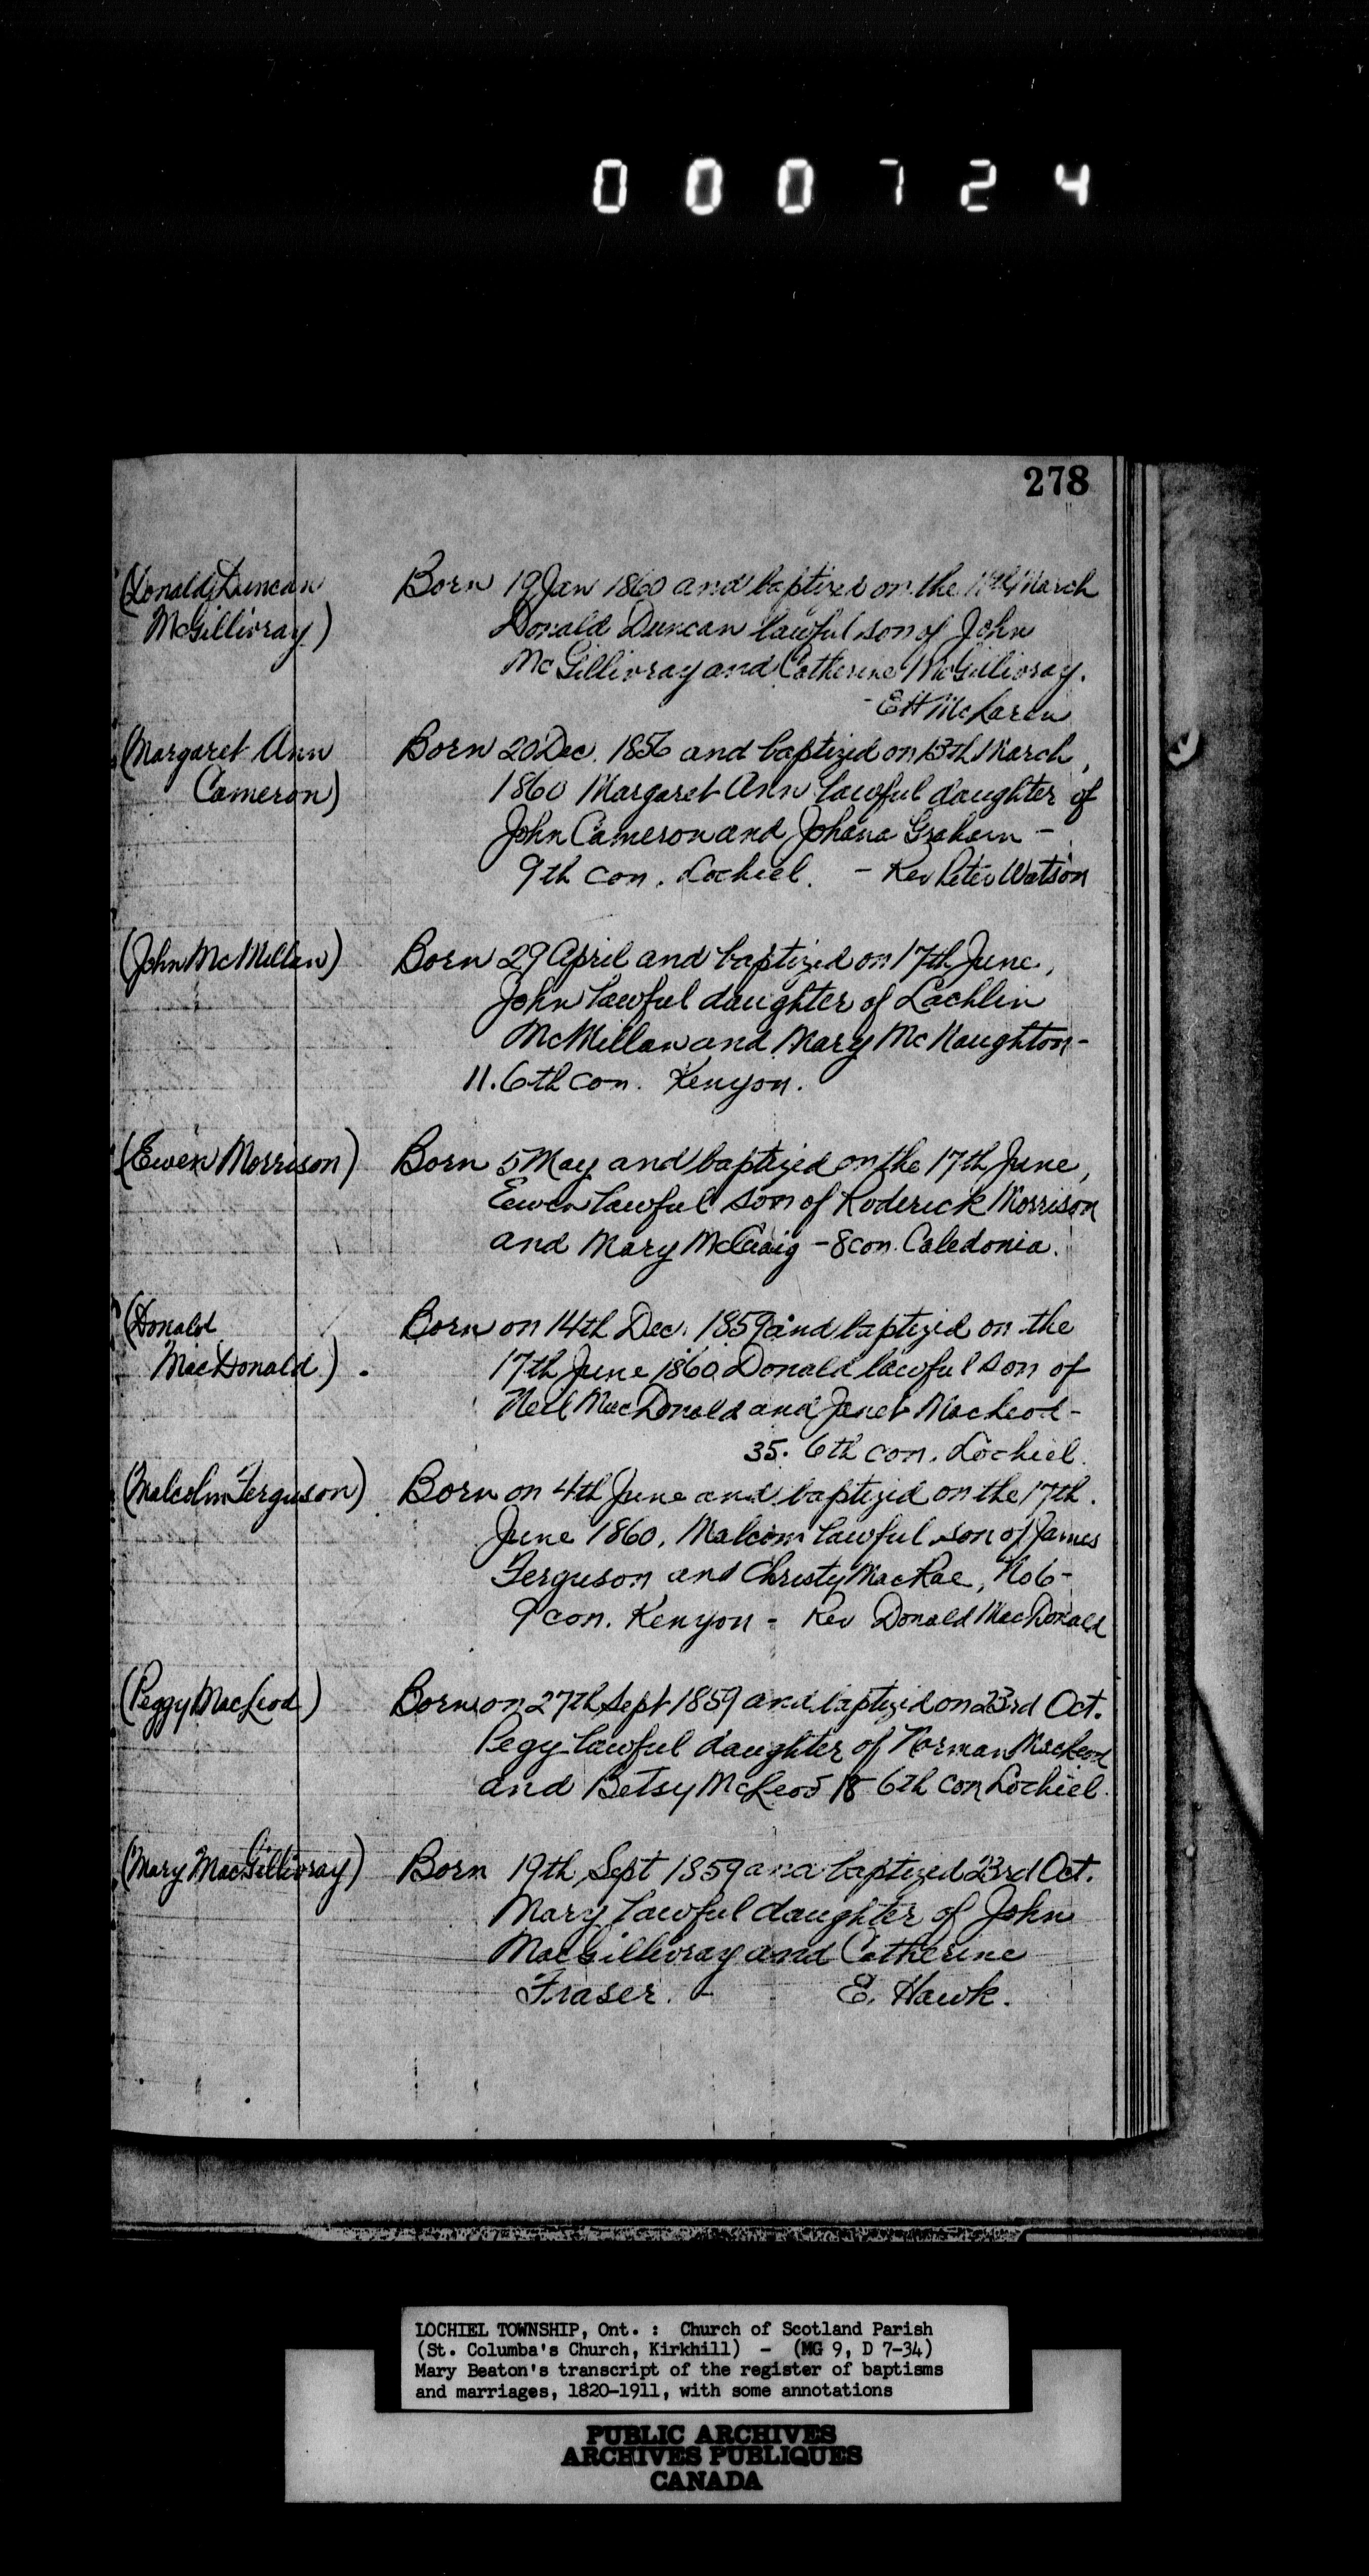 000724
278
(Donald Duncan
McGillivray)
Born 19 Jan 1860 and baptized on the 11th March
Donald Duncan lawful son of John
McGillivray and Catherine McGillivray.
- EH McLaren
(Margaret Ann
Cameron)
Born 20 Dec. 1856 and baptized on 13th March,
1860 Margaret Ann lawful daughter of
John Cameron and Johana Graham -
9th con. Lochiel. - Rev Peter Watson
(John McMillan)
Born 29 April and baptized on 17th June,
John lawful daughter of Lachlin
McMillan and Mary McNaughton -
11. 6th con. Kenyon.
(Ewen Morrison)
Born 5 May and baptized on the 17th June,
Ewen lawful son of Roderick Morrison
and Mary McCuaig - 8 con. Caledonia.
(Donald
MacDonald).
Born on 14th Dec. 1859 and baptized on the
17th June 1860 Donald lawful son of
Neil MacDonald and Janet MacLeod -
35. 6th con. Lochiel.
(Malcolm Ferguson)
Born on 4th June and baptized on the 17th.
June 1860. Malcom lawful son of James
Ferguson and Christy MacRae, No 6 -
9 con. Kenyon - Rev Donald MacDonald
(Peggy MacLeod)
Born on 27th Sept 1859 and baptized on 23rd Oct.
Pegy lawful daughter of Norman MacLeod
and Betsy McLeod 18 6th con Lochiel.
(Mary MacGillivray)
Born 19th Sept 1859 and baptized 23rd Oct.
Mary lawful daughter of John
MacGillivray and Catherine
Fraser. - E. Hawk.
LOCHIEL TOWNSHIP, Ont. : Church of Scotland Parish
(St. Columba's Church, Kirkhill) - (MG 9, D 7-34)
Mary Beaton's transcript of the register of baptisms
and marriages, 1820-1911, with some annotations
PUBLIC ARCHIVES
ARCHIVES PUBLIQUES
CANADA